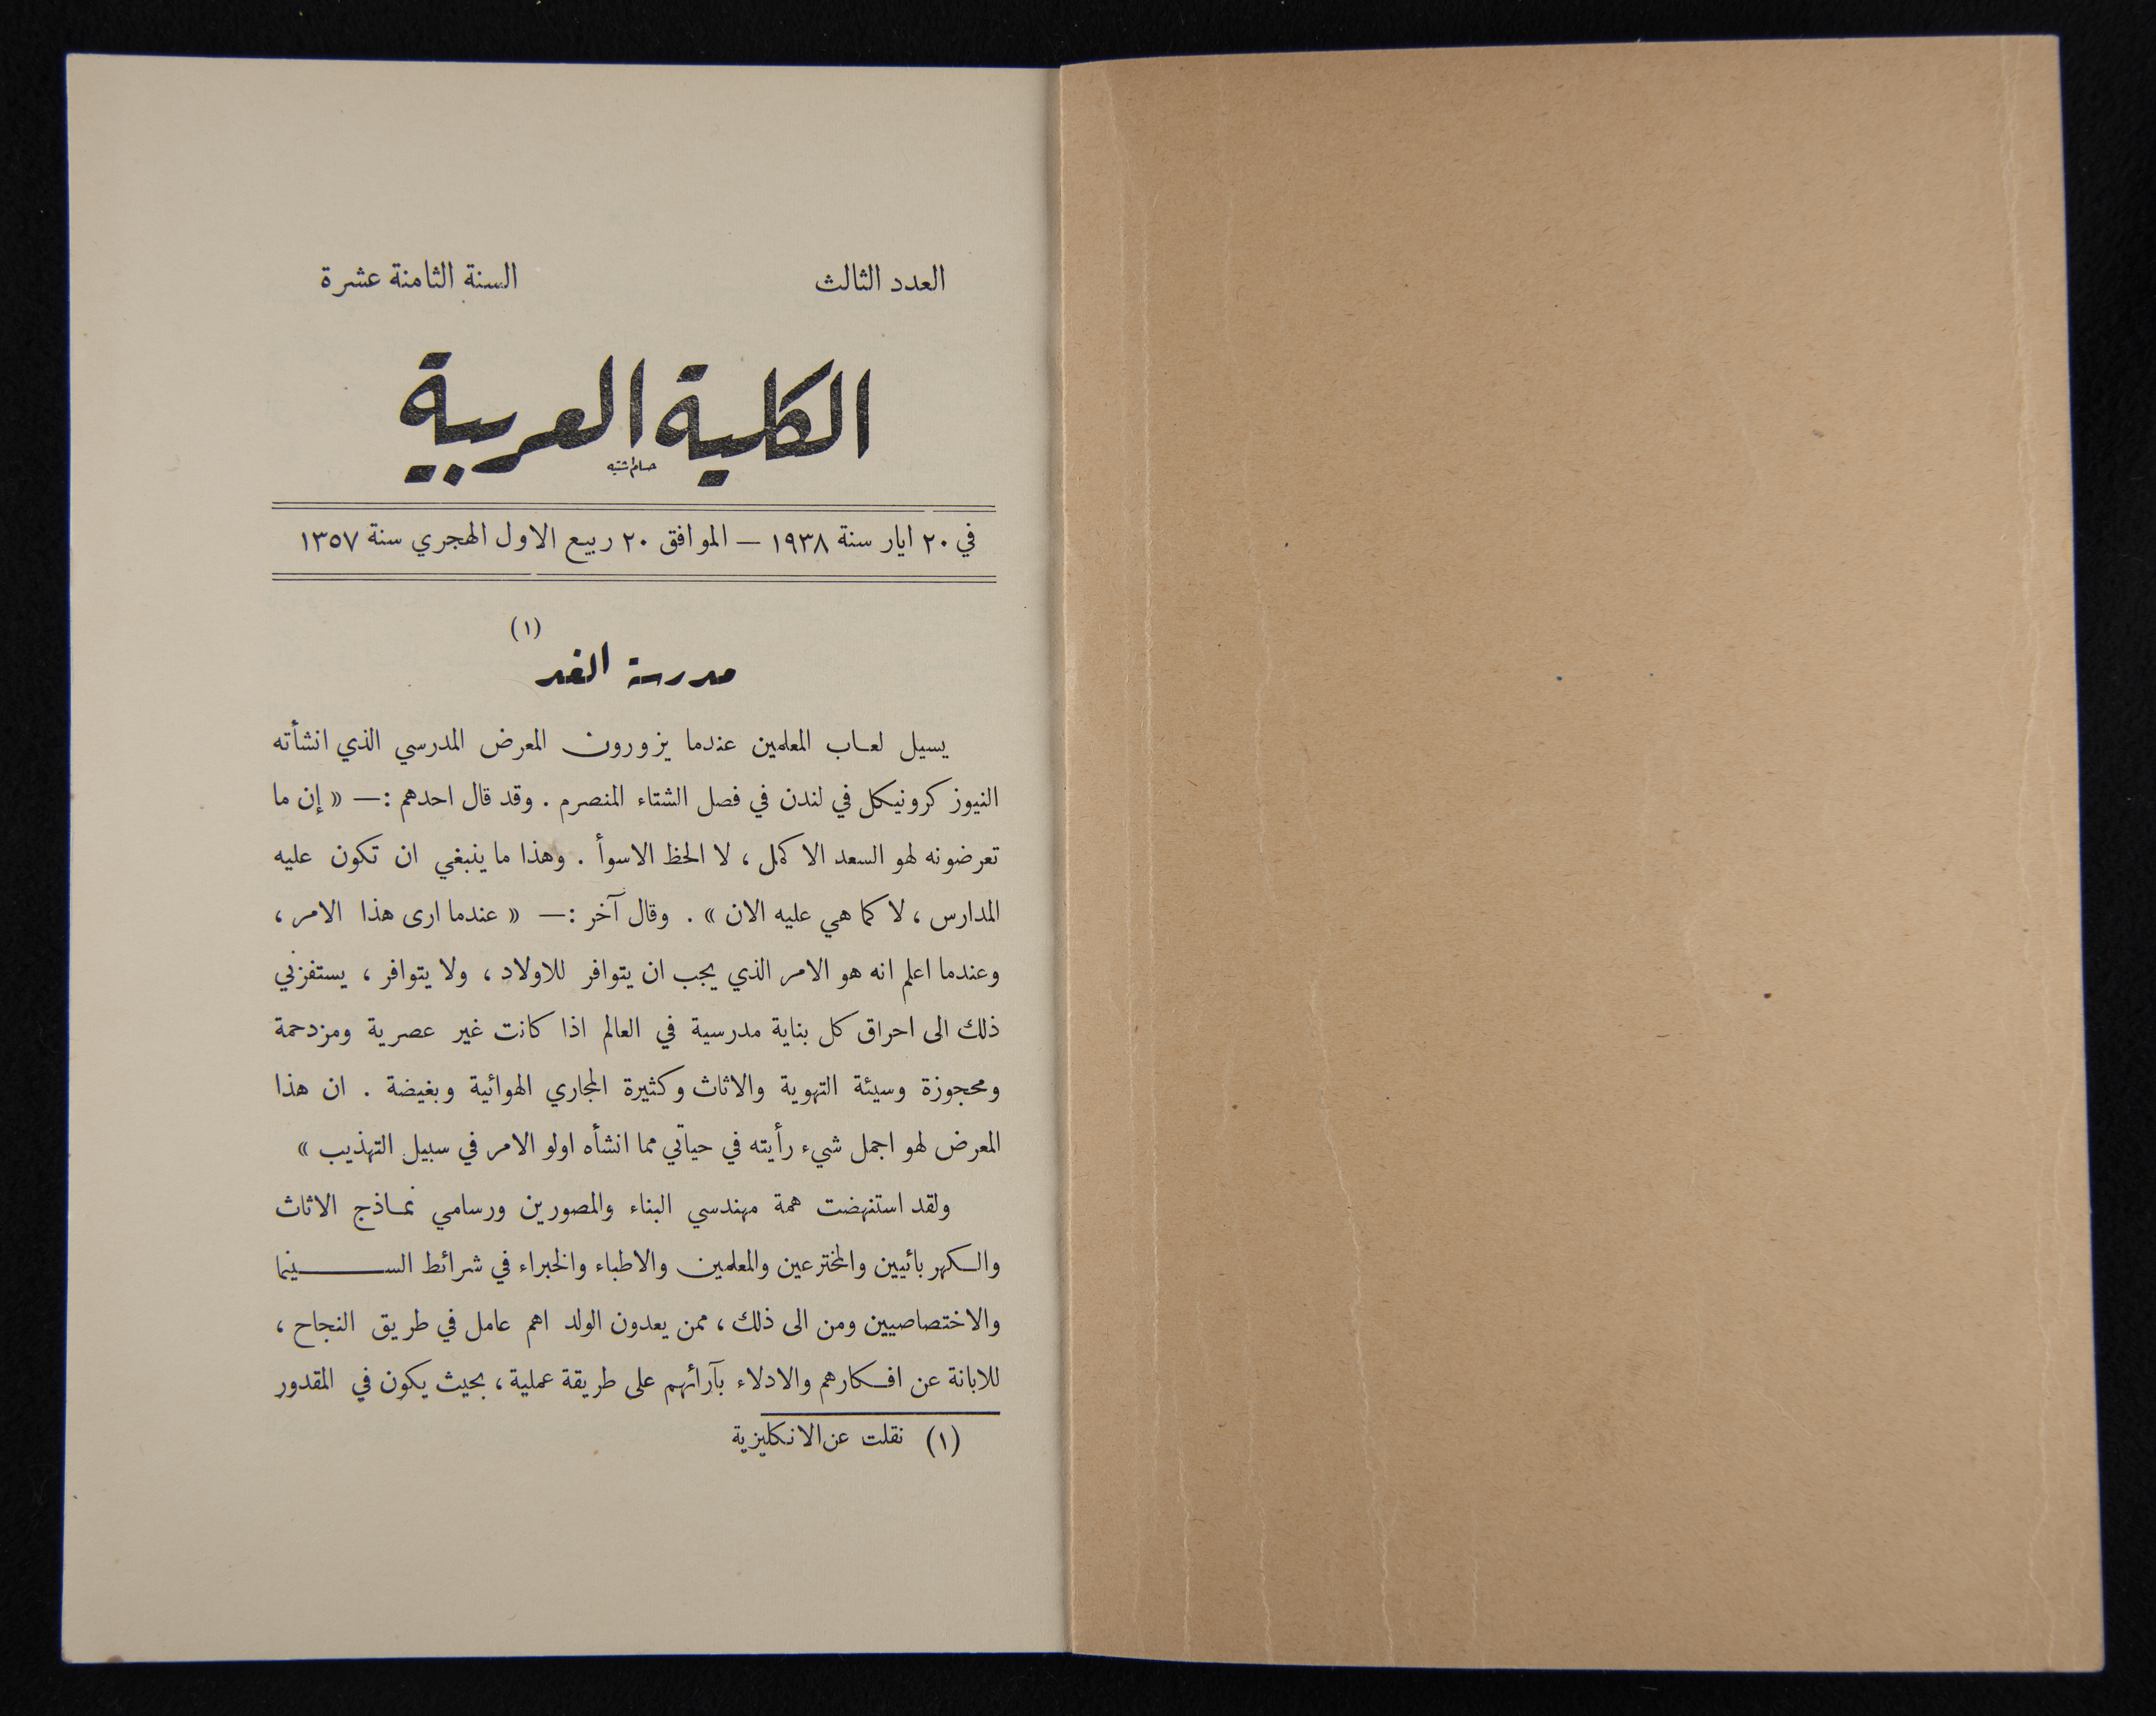 العدد الثالث
السنة الثامنة عشرة
الكلية العربية
في ٢٠ ايار سنة ١٩٣٨ — الموافق ٢٠ ربيع الاول الهجري سنة ١٣٥٧
مدرسة الغد (١)
يسيل لعاب المعلمين عندما يزورون المعرض المدرسي الذي انشأته
النيوز كرونيكل في لندن في فصل الشتاء المنصرم . وقد قال احدهم :— « إن ما
تعرضونه لهو السعد الاكمل ، لا الحظ الاسوأ . وهذا ما ينبغي ان تكون عليه
المدارس ، لا كما هي عليه الان » . وقال آخر :— « عندما ارى هذا الامر ،
وعندما اعلم انه هو الامر الذي يجب ان يتوافر للاولاد ، ولا يتوافر ، يستفزني
ذلك الى احراق كل بناية مدرسية في العالم اذا كانت غير عصرية ومزدحمة
ومحجوزة وسيئة التهوية والاثاث وكثيرة المجاري الهوائية وبغيضة . ان هذا
المعرض لهو اجمل شيء رأيته في حياتي مما انشأه اولو الامر في سبيل التهذيب »
ولقد استنهضت همة مهندسي البناء والمصورين ورسامي نماذج الاثاث
والكهربائيين والمخترعين والمعلمين والاطباء والخبراء في شرائط السينما
والاختصاصيين ومن الى ذلك ، ممن يعدون الولد اهم عامل في طريق النجاح ،
للابانة عن افكارهم والادلاء بآرائهم على طريقة عملية ، بحيث يكون في المقدور
(١) نقلت عن الانكليزية